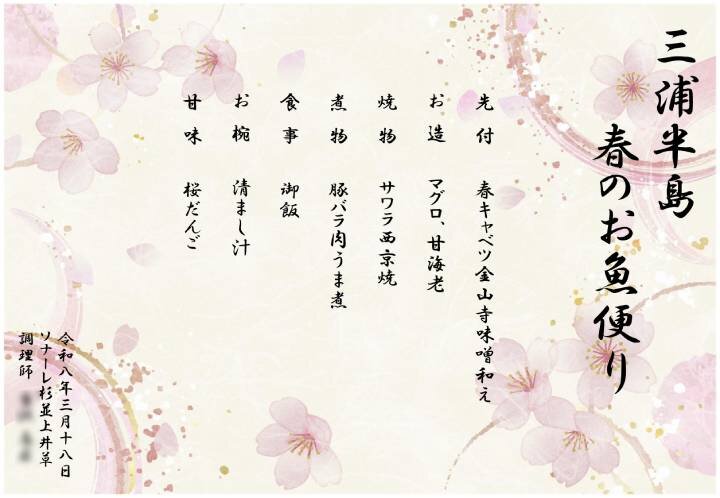 三浦半島
春のお魚便り
先付　春キャベツ金山寺味噌和え
お造　マグロ、甘海老
焼物　サワラ西京焼
煮物　豚バラ肉うま煮
食事　御飯
お椀　清まし汁
甘味　桜だんご
令和八年三月十八日
ソナーレ杉並上井草
調理師